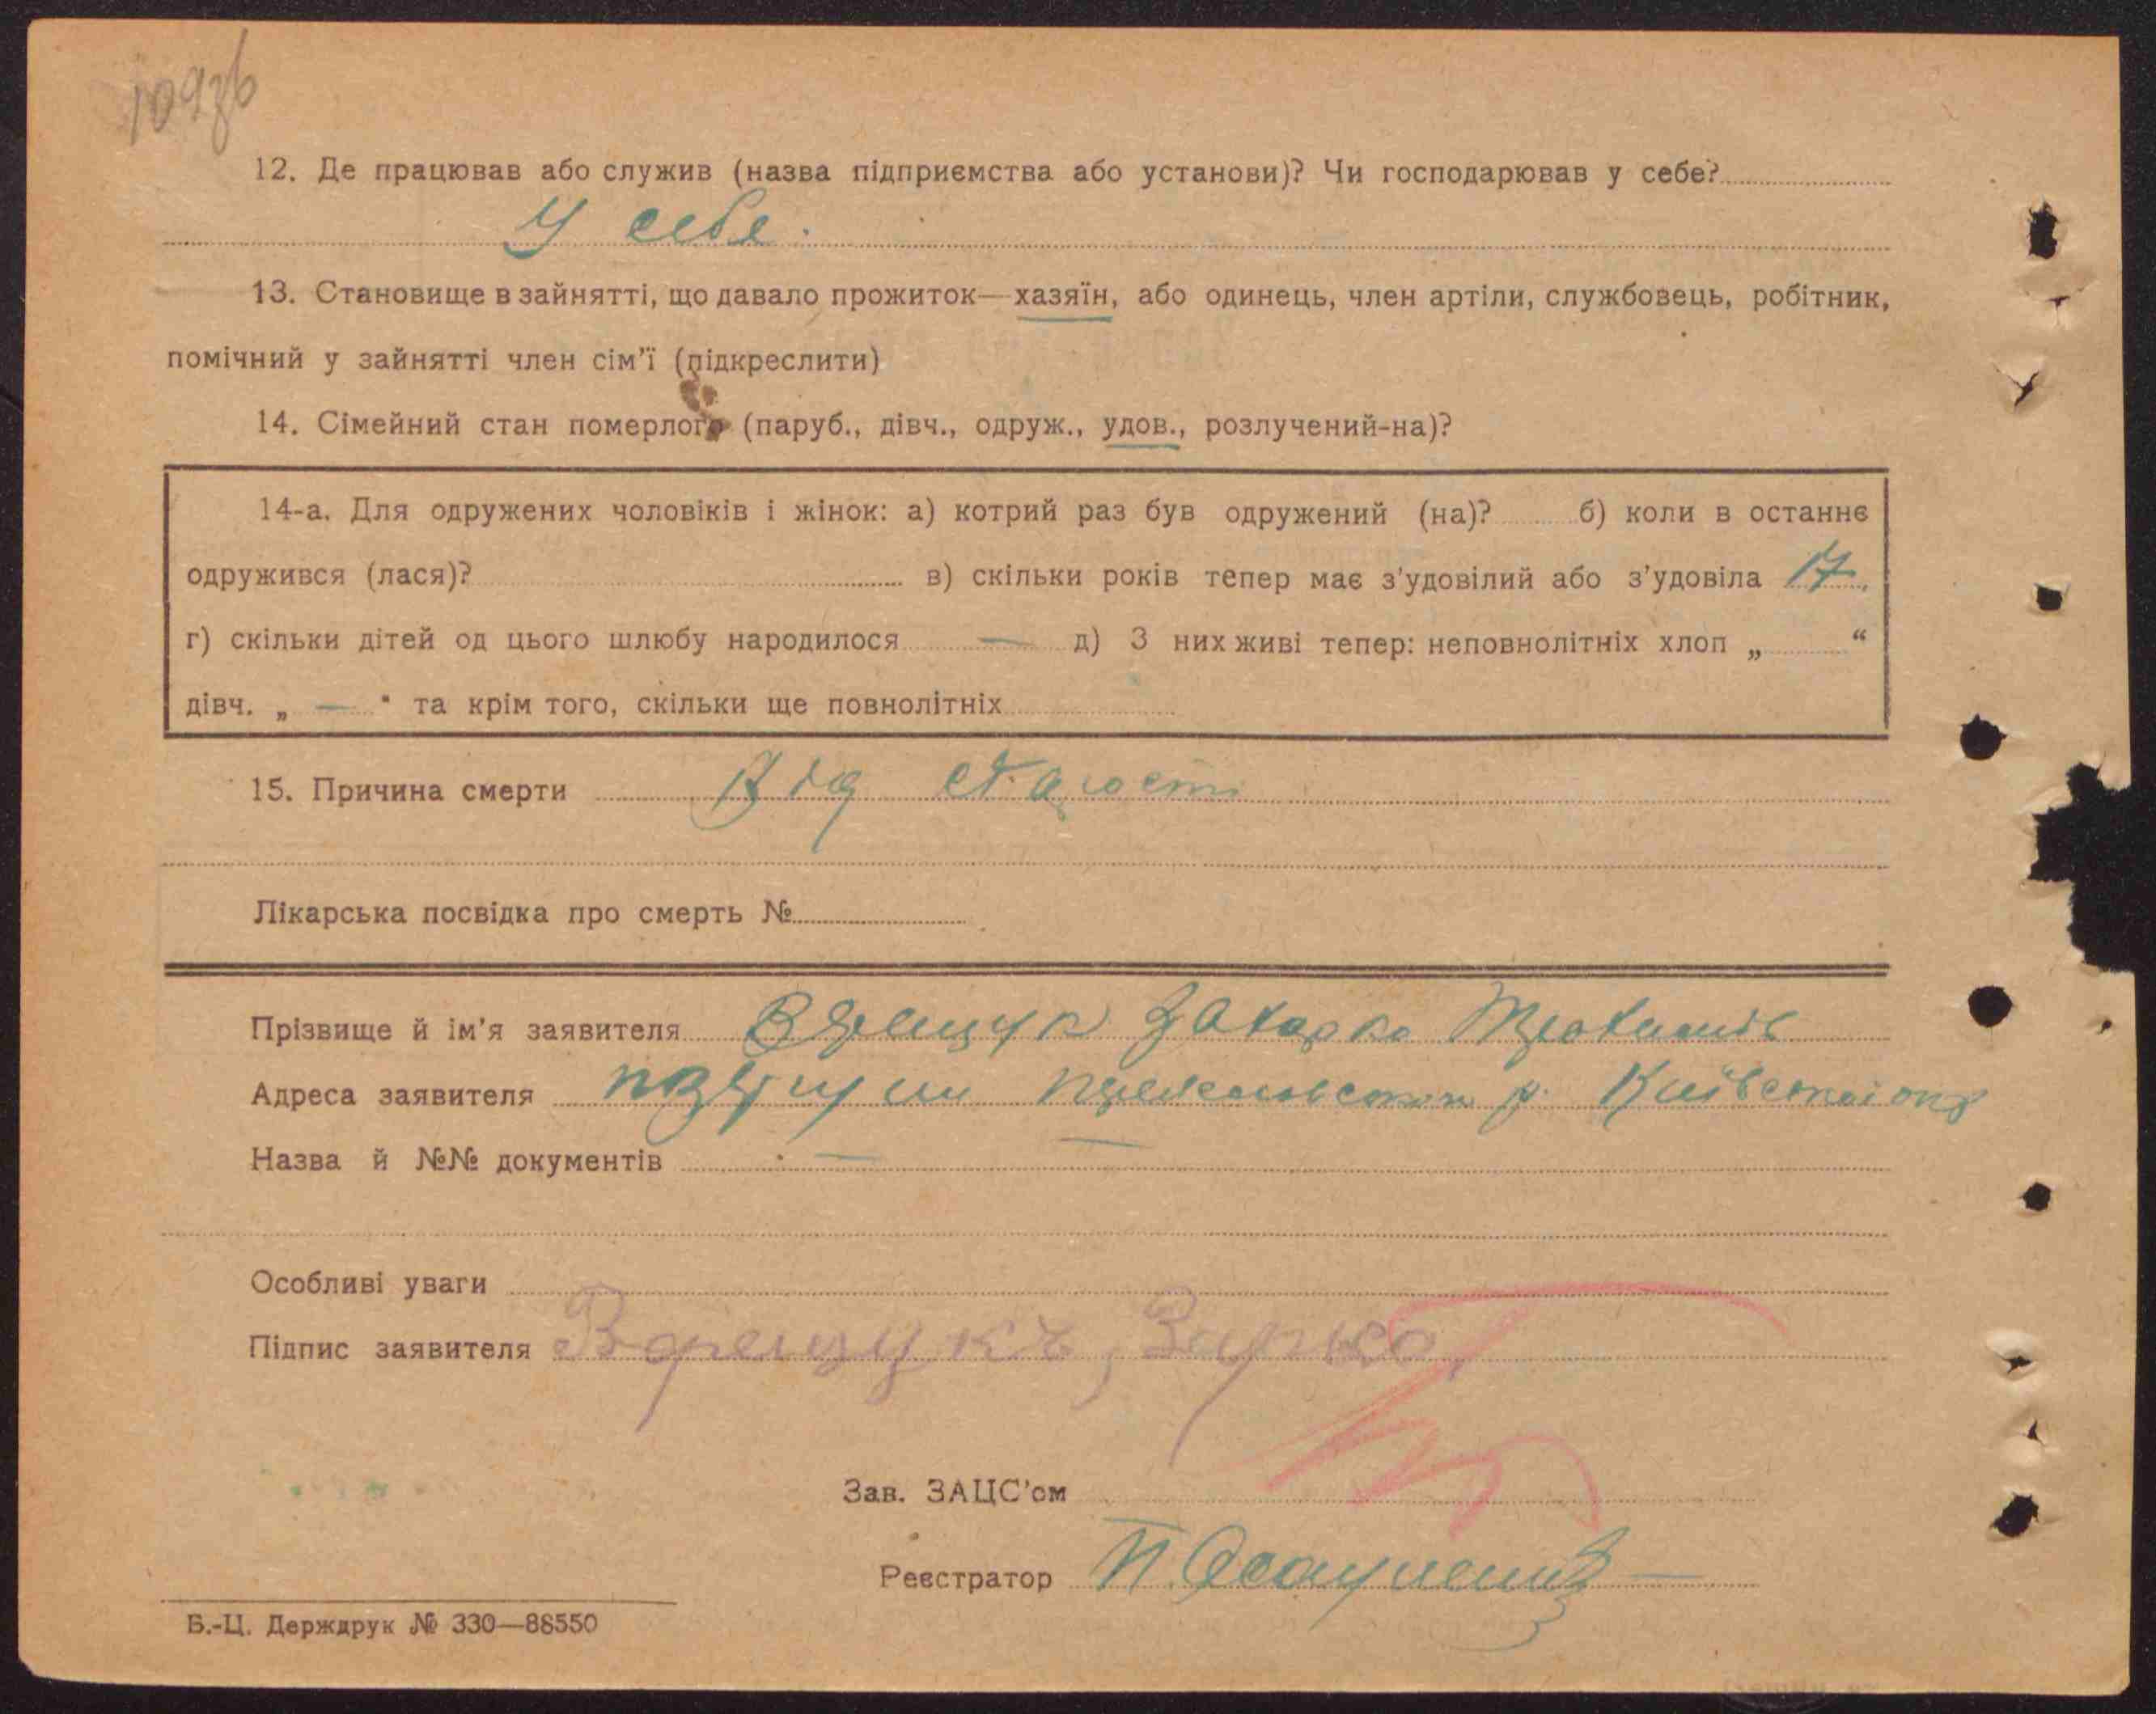 109зв
12. Де працював або служив (назва підприємства або установи)? Чи господарював у себе?
У себе.
13. Становище в зайнятті, що давало прожиток—хазяїн, або одинець, член артіли, службовець, робітник,
помічний у зайнятті член сім'ї (підкреслити)
14. Сімейний стан померлого (паруб., дівч., одруж., удов., розлучений-на)?
14-а. Для одружених чоловіків і жінок: а) котрий раз був одружений (на)? б) коли в останнє
одружився (лася)? в) скільки років тепер має з'удовілий або з'удовіла 17,
г) скільки дітей од цього шлюбу народилося — д) З них живі тепер: неповнолітніх хлоп „ “
дівч. „ — “ та крім того, скільки ще повнолітніх
15. Причина смерти Від старости
Лікарська посвідка про смерть №
Прізвище й ім'я заявителя Захарко
Адреса заявителя р. Київської окр
Назва й №№ документів —
Особливі уваги
Підпис заявителя
Зав. ЗАЦС'ом
Реєстратор
Б.-Ц. Держдрук № 330—88550